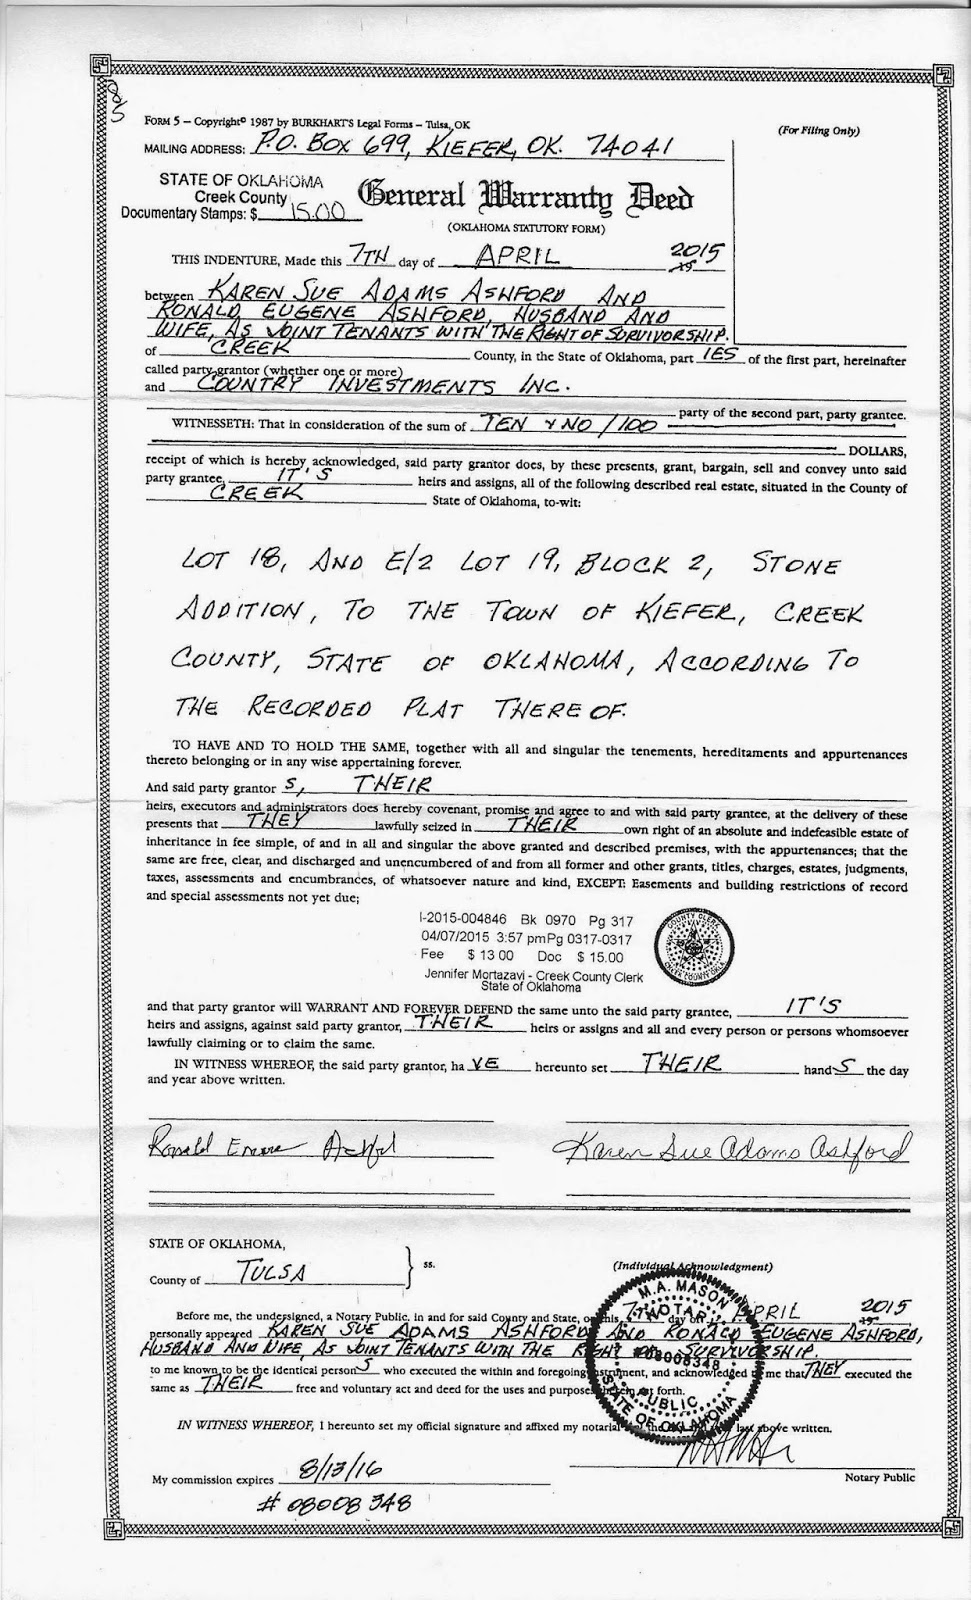 8/5
FORM 5 – Copyright© 1987 by BURKHART'S Legal Forms – Tulsa, OK
(For Filing Only)
MAILING ADDRESS: P.O. BOX 699, KIEFER, OK. 74041
STATE OF OKLAHOMA
Creek County
Documentary Stamps: $ 15.00
General Warranty Deed
(OKLAHOMA STATUTORY FORM)
THIS INDENTURE, Made this 7TH day of APRIL 2015 19
between KAREN SUE ADAMS ASHFORD AND
RONALD EUGENE ASHFORD, HUSBAND AND
WIFE, AS JOINT TENANTS WITH THE RIGHT OF SURVIVORSHIP.
of CREEK County, in the State of Oklahoma, part IES of the first part, hereinafter
called party grantor (whether one or more)
and COUNTRY INVESTMENTS INC.
party of the second part, party grantee.
WITNESSETH: That in consideration of the sum of TEN & NO/100
DOLLARS,
receipt of which is hereby acknowledged, said party grantor does, by these presents, grant, bargain, sell and convey unto said
party grantee, IT'S heirs and assigns, all of the following described real estate, situated in the County of
CREEK State of Oklahoma, to-wit:
LOT 18, AND E/2 LOT 19, BLOCK 2, STONE
ADDITION, TO THE TOWN OF KIEFER, CREEK
COUNTY, STATE OF OKLAHOMA, ACCORDING TO
THE RECORDED PLAT THERE OF.
TO HAVE AND TO HOLD THE SAME, together with all and singular the tenements, hereditaments and appurtenances
thereto belonging or in any wise appertaining forever.
And said party grantor S, THEIR
heirs, executors and administrators does hereby covenant, promise and agree to and with said party grantee, at the delivery of these
presents that THEY lawfully seized in THEIR own right of an absolute and indefeasible estate of
inheritance in fee simple, of and in all and singular the above granted and described premises, with the appurtenances; that the
same are free, clear, and discharged and unencumbered of and from all former and other grants, titles, charges, estates, judgments,
taxes, assessments and encumbrances, of whatsoever nature and kind, EXCEPT: Easements and building restrictions of record
and special assessments not yet due;
I-2015-004846 Bk 0970 Pg 317
04/07/2015 3:57 pm Pg 0317-0317
Fee $ 13.00 Doc $ 15.00
Jennifer Mortazavi - Creek County Clerk
State of Oklahoma
COUNTY CLERK
CREEK COUNTY OKLA.
and that party grantor will WARRANT AND FOREVER DEFEND the same unto the said party grantee, IT'S
heirs and assigns, against said party grantor, THEIR heirs or assigns and all and every person or persons whomsoever
lawfully claiming or to claim the same.
IN WITNESS WHEREOF, the said party grantor, ha VE hereunto set THEIR hand S the day
and year above written.
Ronald Karen Sue Adams Ashford
STATE OF OKLAHOMA,
County of TULSA } ss.
(Individual Acknowledgment)
Before me, the undersigned, a Notary Public, in and for said County and State, on this 7TH day of APRIL 2015 19
personally appeared KAREN SUE ADAMS ASHFORD AND RONALD EUGENE ASHFORD,
HUSBAND AND WIFE, AS JOINT TENANTS WITH THE RIGHT OF SURVIVORSHIP.
to me known to be the identical person S who executed the within and foregoing instrument, and acknowledged to me that THEY executed the
same as THEIR free and voluntary act and deed for the uses and purposes therein set forth.
M.A. MASON
NOTARY
#08008348
PUBLIC
STATE OF OKLAHOMA
IN WITNESS WHEREOF, I hereunto set my official signature and affixed my notarial last above written.
My commission expires 8/13/16
Notary Public
# 08008348